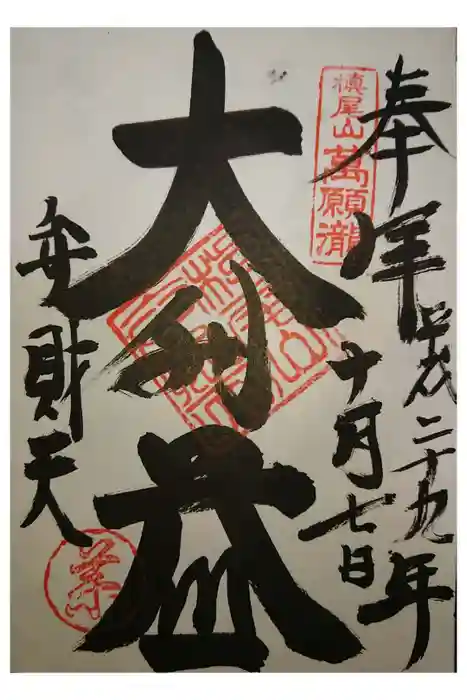 槙尾山萬願瀧
奉拝
平成二十九年
十月七日
大利益
弁財天